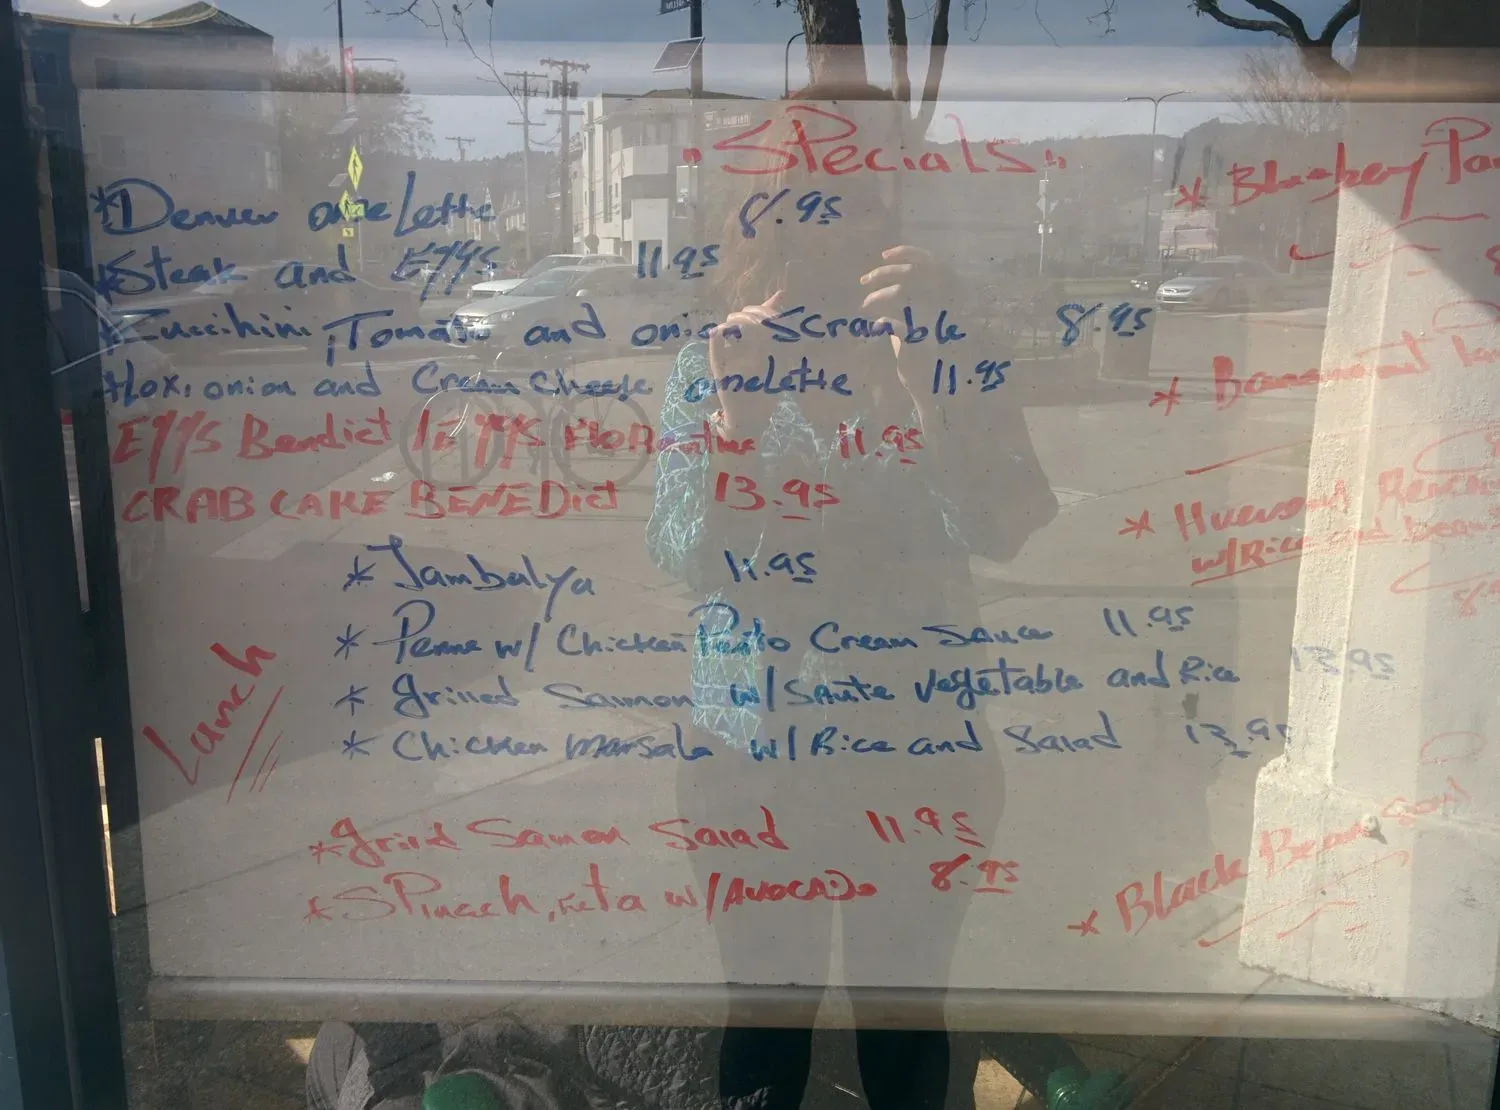 "Specials"
*Denver omelette 8.95
*Steak and Eggs 11.95
*Zuccihini, Tomato and onion Scramble 8.95
*Lox, onion and Cream Cheese omelette 11.95
Eggs Bendict / Eggs Florentine 11.95
CRAB CAKE BENEDict 13.95
Lunch
* Jambalya 11.95
* Penne w/ Chicken Pesto Cream Sauce 11.95
* Grilled Salmon w/ Saute vegetable and Rice 13.95
* Chicken marsala w/ Rice and Salad 13.95
*Grild Salmon Salad 11.95
*Spinach, Feta w/ Avocado 8.95
* Blueberry
*
* Huevos
w/Rice and beans
* Black Bean Soup